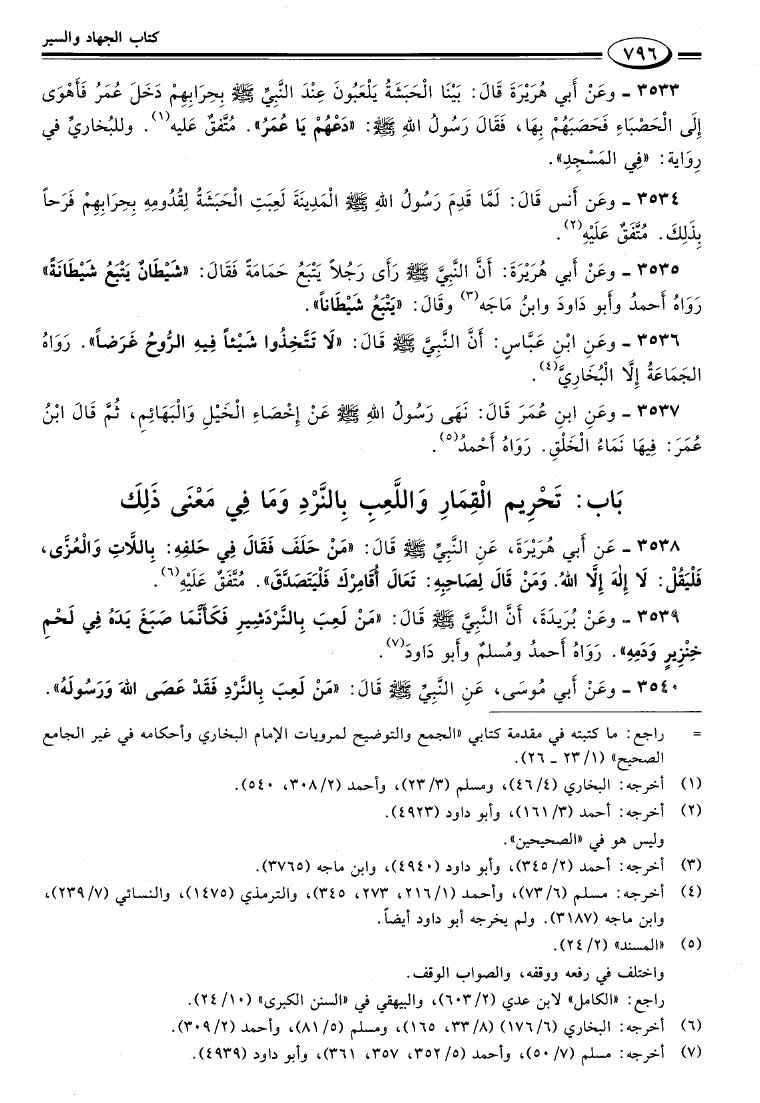 كتاب الجهاد والسير
٧٩٦
٣٥٣٣ ـ وعَنْ أبي هُرَيْرَةَ قَالَ: بَيْنَا الْحَبَشَةُ يَلْعَبُونَ عِنْدَ النَّبِيِّ ﷺ بِحِرَابِهِمْ دَخَلَ عُمَرُ فَأَهْوَى
إِلَى الْحَصْبَاءِ فَحَصَبَهُمْ بِهَا، فَقَالَ رَسُولُ اللهِ ﷺ: «دَعْهُمْ يَا عُمَرُ». مُتَّفقٌ عليه(١). وللبُخاريِّ في
رِوَاية: «فِي المَسْجِدِ».
٣٥٣٤ ـ وعَن أنس قَالَ: لَمَّا قَدِمَ رَسُولُ اللهِ ﷺ الْمَدِينَةَ لَعِبَتِ الْحَبَشَةُ لِقُدُومِهِ بِحِرَابِهِمْ فَرَحاً
بِذَلِكَ. مُتَّفَقٌ عَلَيْهِ(٢).
٣٥٣٥ ـ وعَنْ أبي هُرَيْرَةَ: أَنَّ النَّبِيَّ ﷺ رَأَى رَجُلاً يَتْبَعُ حَمَامَةً فَقَالَ: «شَيْطَانٌ يَتْبَعُ شَيْطَانَةً»
رَوَاهُ أَحمدُ وأَبو دَاودَ وابنُ مَاجَه(٣) وقَالَ: «يَتْبَعُ شَيْطَاناً».
٣٥٣٦ ـ وعَنِ ابْنِ عَبَّاسٍ: أَنَّ النَّبِيَّ ﷺ قَالَ: «لَا تَتَّخِذُوا شَيْئاً فِيهِ الرُّوحُ غَرَضاً». رَوَاهُ
الجَمَاعَةُ إِلَّا الْبُخَارِيَّ(٤).
٣٥٣٧ ـ وعَنِ ابنِ عُمَرَ قَالَ: نَهَى رَسُولُ اللهِ ﷺ عَنْ إِخْصَاءِ الْخَيْلِ وَالْبَهَائِمِ، ثُمَّ قَالَ ابْنُ
عُمَرَ: فِيهَا نَمَاءُ الْخَلْقِ. رَوَاهُ أَحْمدُ(٥).
بَاب: تَحْرِيمِ الْقِمَارِ وَاللَّعِبِ بِالنَّرْدِ وَمَا فِي مَعْنَى ذَلِكَ
٣٥٣٨ ـ عَن أبي هُرَيْرَةَ، عَنِ النَّبِيِّ ﷺ قَالَ: «مَنْ حَلَفَ فَقَالَ فِي حَلِفِهِ: بِاللَّاتِ وَالْعُزَّى،
فَلْيَقُلْ: لَا إِلٰهَ إِلَّا اللهُ. وَمَنْ قَالَ لِصَاحِبِهِ: تَعَالَ أُقَامِرْكَ فَلْيَتَصَدَّقْ». مُتَّفَقٌ عَلَيْهِ(٦).
٣٥٣٩ ـ وعَنْ بُرَيدَةَ، أَنَّ النَّبِيَّ ﷺ قَالَ: «مَنْ لَعِبَ بِالنَّرْدَشِيرِ فَكَأَنَّمَا صَبَغَ يَدَهُ فِي لَحْمِ
خِنْزِيرٍ وَدَمِهِ». رَوَاهُ أَحمدُ ومُسلمٌ وأَبو دَاودَ(٧).
٣٥٤٠ ـ وعَنْ أَبي مُوسَى، عَنِ النَّبِيِّ ﷺ قَالَ: «مَنْ لَعِبَ بِالنَّرْدِ فَقَدْ عَصَى اللهَ وَرَسُولَهُ».
= راجع: ما كتبته في مقدمة كتابي «الجمع والتوضيح لمرويات الإمام البخاري وأحكامه في غير الجامع
الصحيح» (١/ ٢٣ ـ ٢٦).
(١) أخرجه: البخاري (٤/ ٤٦)، ومسلم (٣/ ٢٣)، وأحمد (٢/ ٣٠٨، ٥٤٠).
(٢) أخرجه: أحمد (٣/ ١٦١)، وأبو داود (٤٩٢٣).
وليس هو في «الصحيحين».
(٣) أخرجه: أحمد (٢/ ٣٤٥)، وأبو داود (٤٩٤٠)، وابن ماجه (٣٧٦٥).
(٤) أخرجه: مسلم (٦/ ٧٣)، وأحمد (١/ ٢١٦، ٢٧٣، ٣٤٥)، والترمذي (١٤٧٥)، والنسائي (٧/ ٢٣٩)،
وابن ماجه (٣١٨٧). ولم يخرجه أبو داود أيضاً.
(٥) «المسند» (٢/ ٢٤).
واختلف في رفعه ووقفه، والصواب الوقف.
راجع: «الكامل» لابن عدي (٢/ ٦٠٣)، والبيهقي في «السنن الكبرى» (١٠/ ٢٤).
(٦) أخرجه: البخاري (٦/ ١٧٦) (٨/ ٣٣، ١٦٥)، ومسلم (٥/ ٨١)، وأحمد (٢/ ٣٠٩).
(٧) أخرجه: مسلم (٧/ ٥٠)، وأحمد (٥/ ٣٥٢، ٣٥٧، ٣٦١)، وأبو داود (٤٩٣٩).